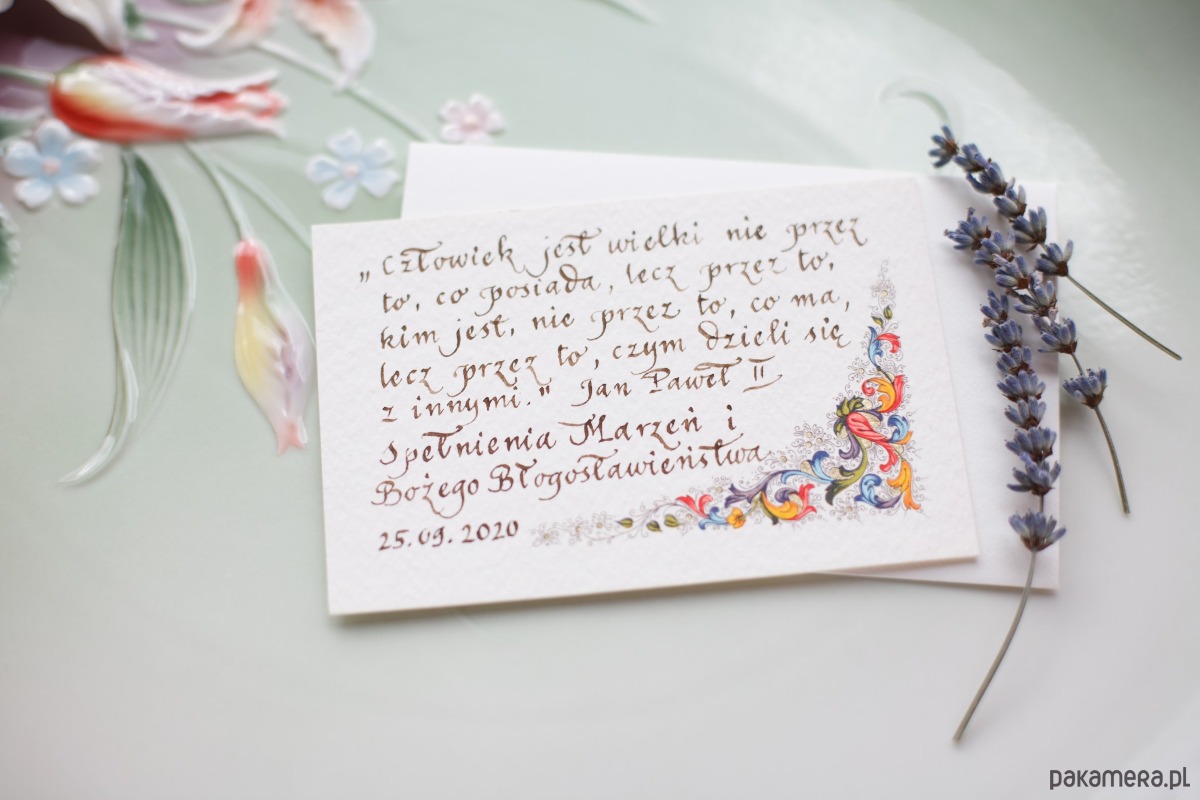 „Człowiek jest wielki nie przez
to, co posiada, lecz przez to,
kim jest, nie przez to, co ma,
lecz przez to, czym dzieli się
z innymi." Jan Paweł II
Spełnienia Marzeń i
Bożego Błogosławieństwa
25.09.2020
pakamera.pl